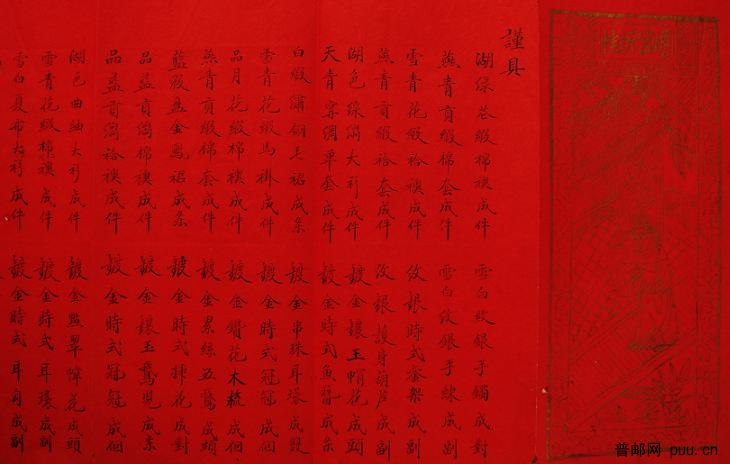 謹具
湖綠花緞棉襖成件
雪白紋銀手鐲成對
燕青貢緞棉套成件
雪白紋銀手線成副
雪青花緞袷襖成件
紋銀時式成副
燕青貢緞袷套成件
紋銀護身葫芦成副
湖色綿綢大衫成件
鍍金鑲玉帽花成頭
天青寧綢單套成件
鍍金時式魚成条
白緞綉裙成条
鍍金串珠耳環成
雪青花緞馬褂成件
鍍金時式冠冠成個
品月花緞棉襖成件
鍍金花木梳成個
燕青貢緞棉套成件
鍍金累絲五鳳成頭
藍緞盘金鳳裙成条
鍍金時式挿花成對
品益貢綢棉襖成件
鍍金鑲玉成条
品益貢綢袷襖成件
鍍金時式冠冠成個
湖色曲紬大衫成件
鍍金點翠花成頭
雪青花緞棉襖成件
鍍金時式耳環成副
雪白夏布大衫成件
鍍金時式耳成副
普邮网 puu.cn